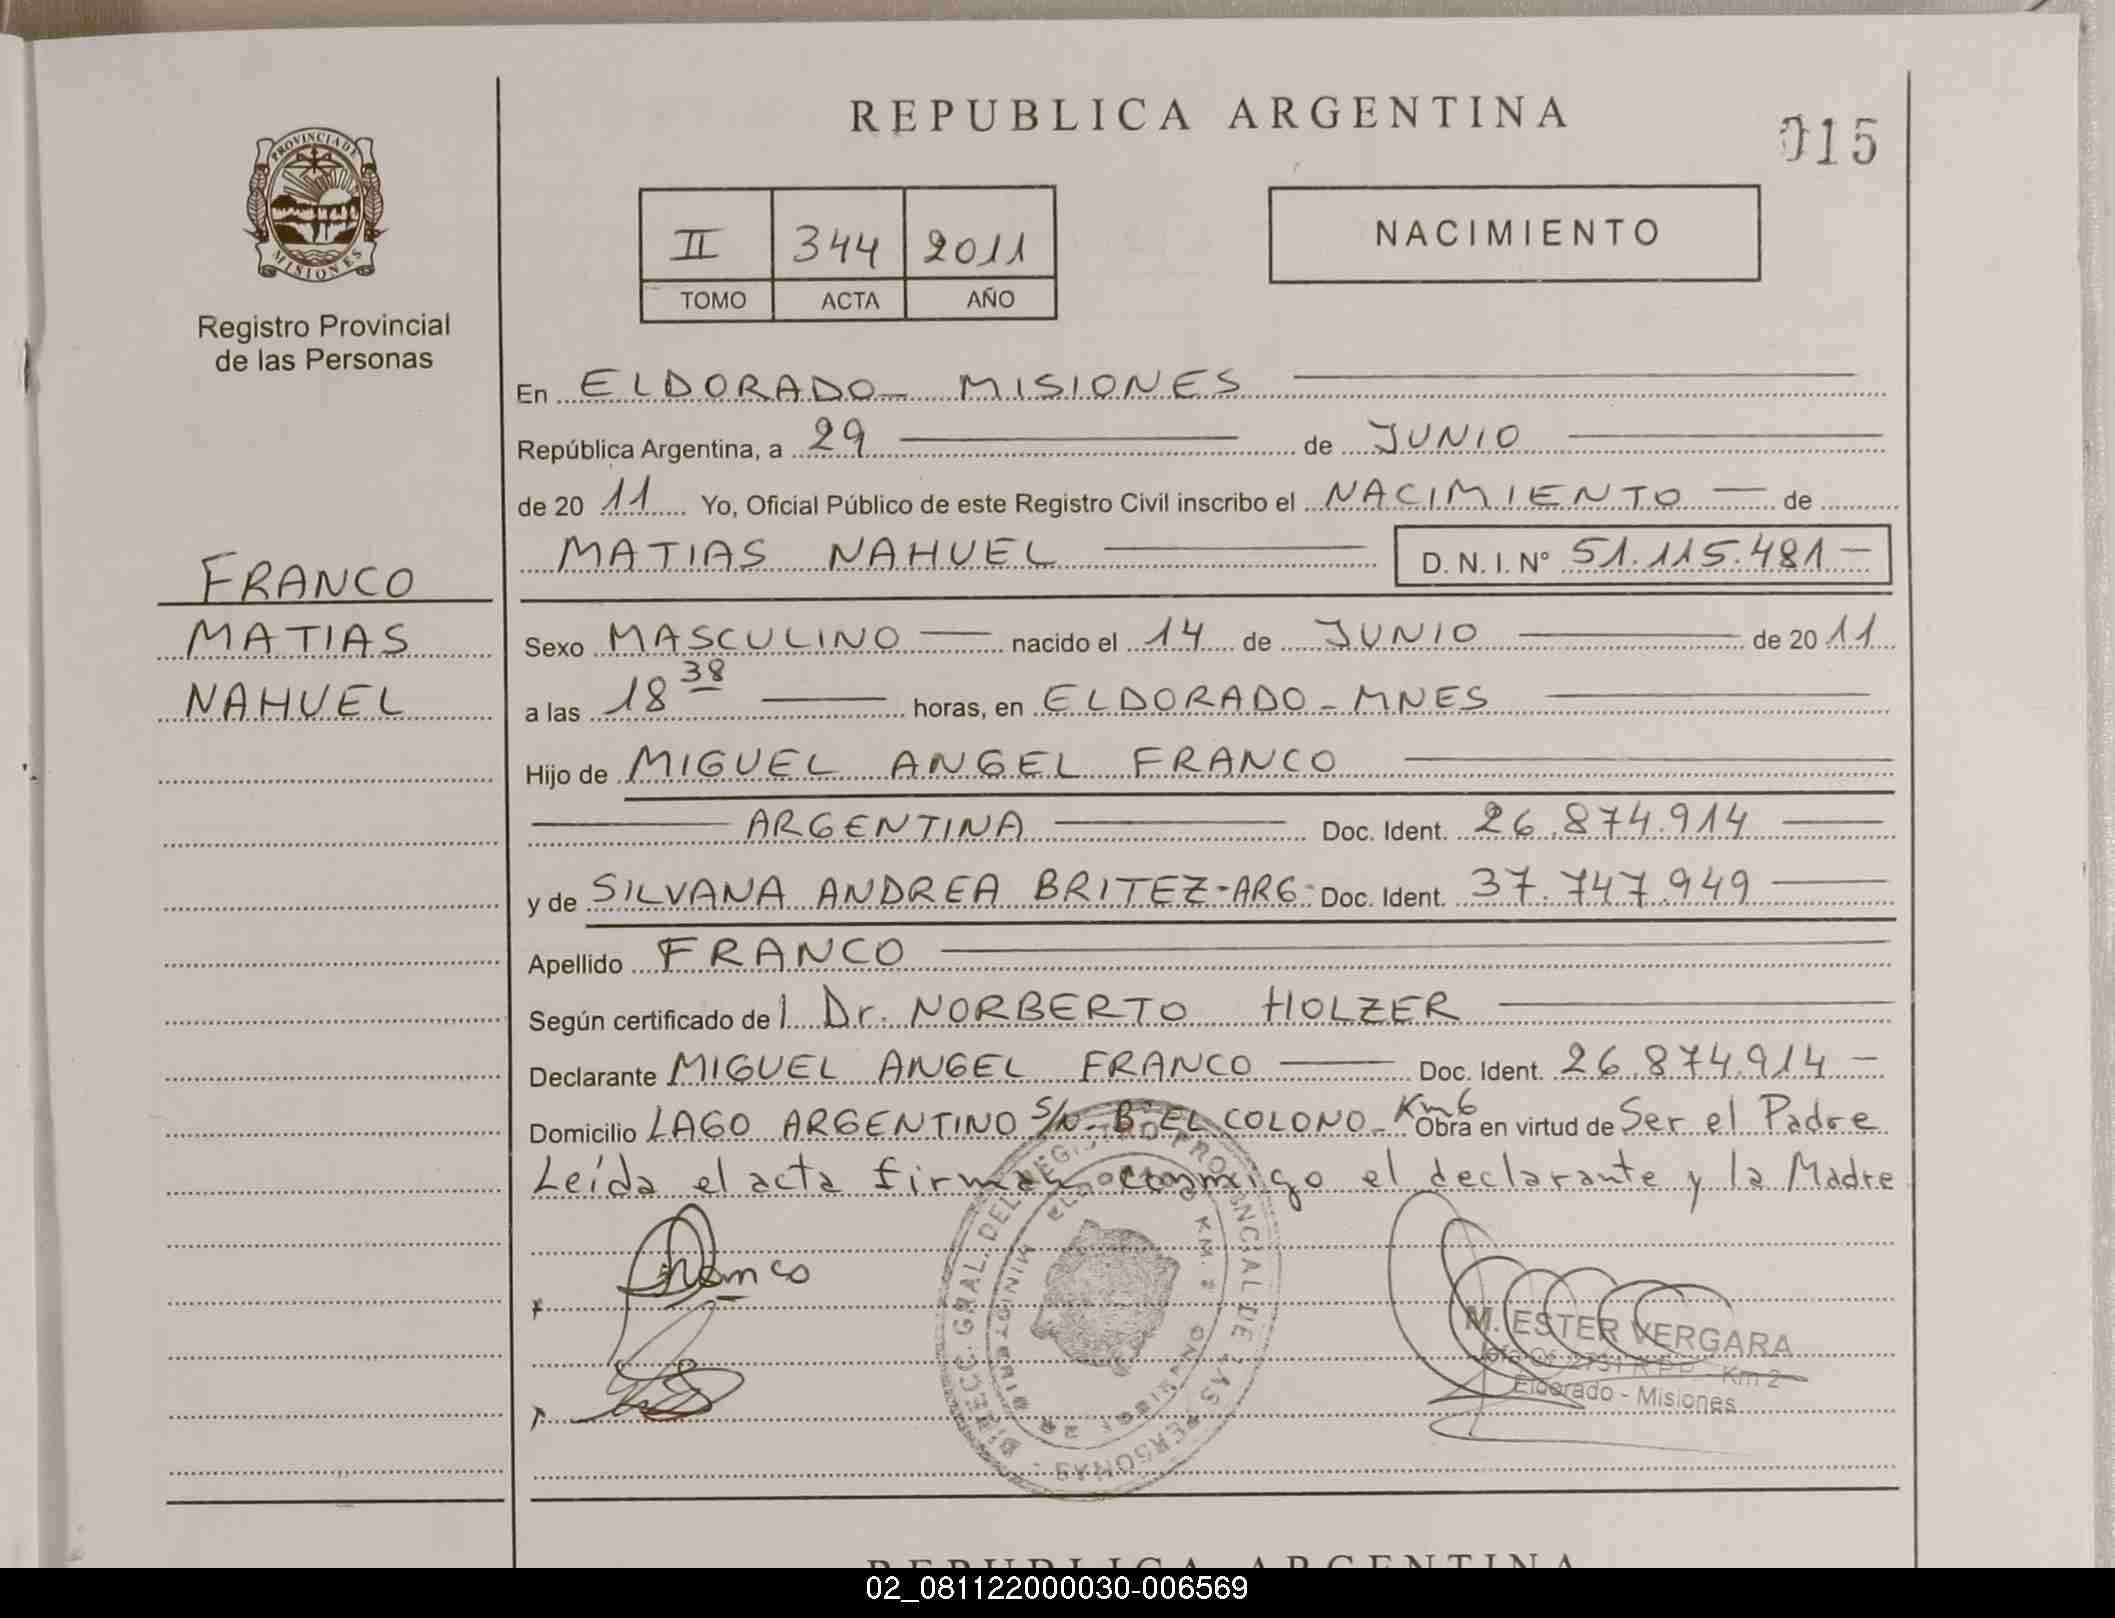 REPUBLICA ARGENTINA
015
PROVINCIA DE MISIONES
Registro Provincial
de las Personas
II 344 2011
TOMO ACTA AÑO
NACIMIENTO
En ELDORADO - MISIONES
República Argentina, a 29 de JUNIO
de 20 11 Yo, Oficial Público de este Registro Civil inscribo el NACIMIENTO — de
MATIAS NAHUEL D. N. I. Nº 51.115.481 —
FRANCO
MATIAS
NAHUEL
Sexo MASCULINO — nacido el 14 de JUNIO de 20 11
a las 18 38 horas, en ELDORADO - MNES
Hijo de MIGUEL ANGEL FRANCO
ARGENTINA Doc. Ident. 26.874.914
y de SILVANA ANDREA BRITEZ-ARG- Doc. Ident. 37.747.949
Apellido FRANCO
Según certificado de l Dr. NORBERTO HOLZER
Declarante MIGUEL ANGEL FRANCO Doc. Ident. 26.874.914 —
Domicilio LAGO ARGENTINO S/N - Bº EL COLONO - Km 6 Obra en virtud de Ser el Padre
Leída el acta firman conmigo el declarante y la Madre
Franco
DIRECC. GRAL. DEL REGISTRO PROVINCIAL DE LAS PERSONAS
M. ESTER VERGARA
Km 2
Eldorado - Misiones
REPUBLICA ARGENTINA
02_081122000030-006569